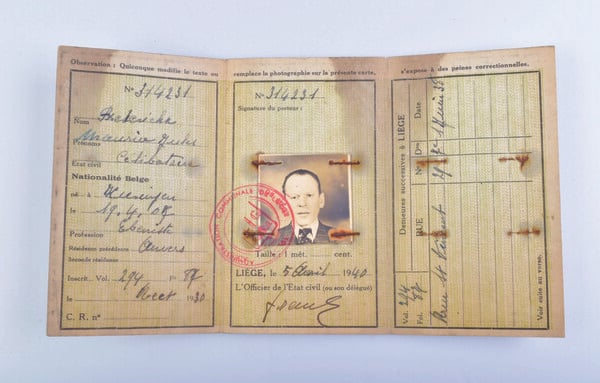 Observation : Quiconque modifie le texte ou
N° 314231
Nom
Prénoms
Etat civil Célibataire
Nationalité Belge
né à
le 19.4.08
Profession Ebéniste
Résidence précédente Anvers
Seconde résidence
Inscrit. Vol. 294 F° 87
le 1930
C. R. n°
remplace la photographie sur la présente carte,
N° 314231
Signature du porteur :
ADMINISTRATION COMMUNALE
Taille : 1 mèt. cent.
LIÉGE, le 5 Avril 1940
L'Officier de l'Etat civil (ou son délégué)
s'expose à des peines correctionnelles.
Demeures successives à LIÉGE
Date
Nos
RUE
Rue St Vincent
Vol. 294
Fol. 87
Voir suite au verso.